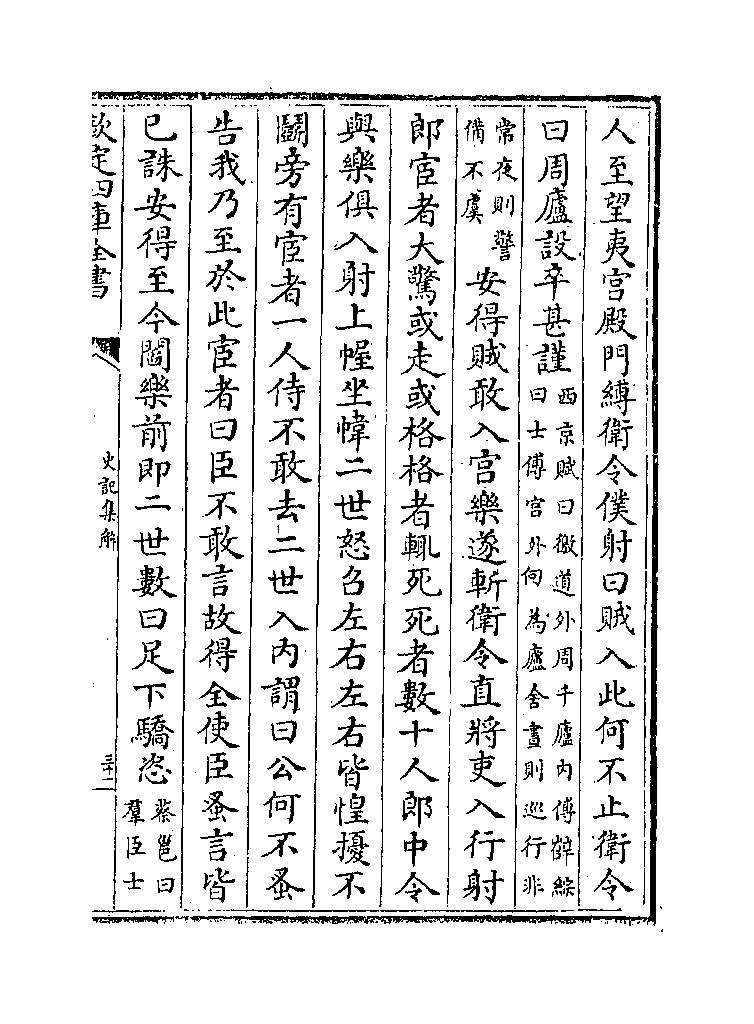 人至望夷宫殿門縛衛令僕射曰賊入此何不止衛令
曰周廬設卒甚謹西京賦曰徼道外周千廬内傅薛綜
曰士傅宫外向為廬舍晝則巡行非
常夜則警
備不虞安得賊敢入宫樂遂斬衛令直將吏入行射
郎宦者大驚或走或格格者輒死死者數十人郎中令
與樂俱入射上幄坐幃二世怒召左右左右皆惶擾不
鬬旁有宦者一人侍不敢去二世入内謂曰公何不蚤
告我乃至於此宦者曰臣不敢言故得全使臣蚤言皆
已誅安得至今閻樂前即二世數曰足下驕恣蔡邕曰
羣臣士
欽定四庫全書
史記集解
三十二